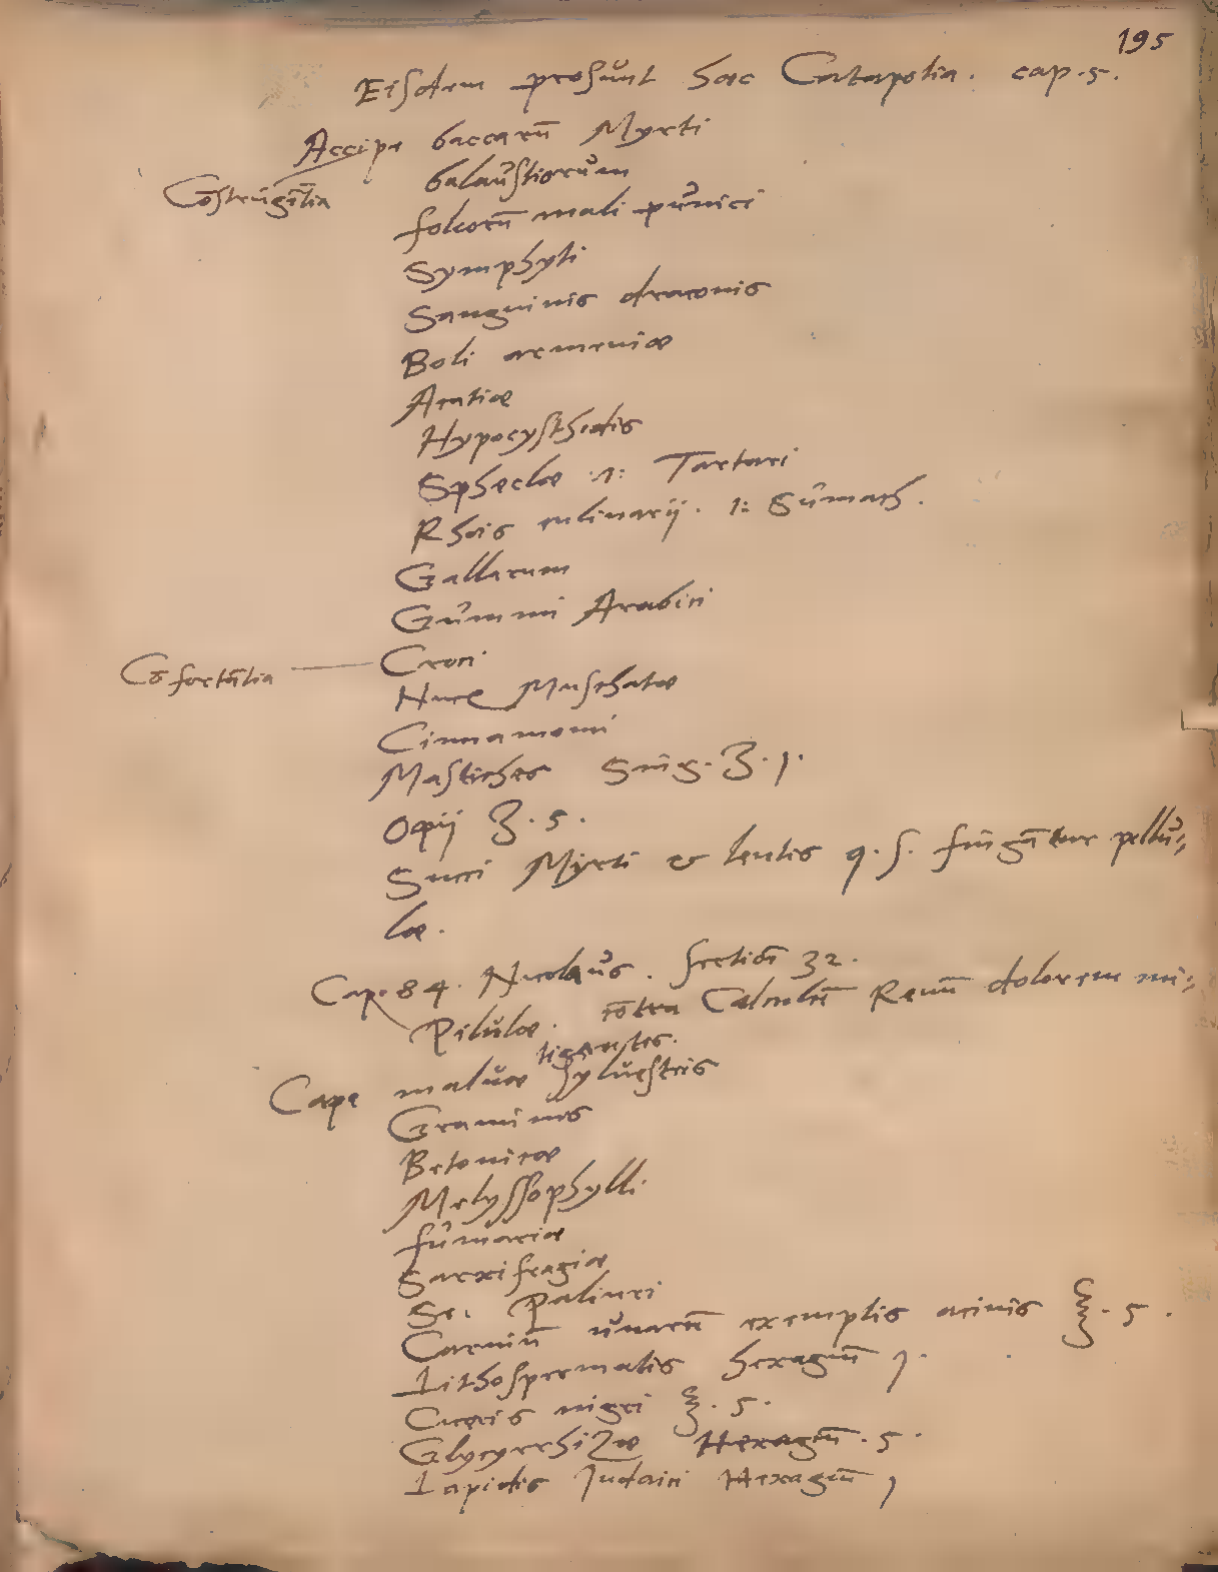 195
Eisdem prosunt hac Catapotia. cap. 5.
Accipe baccarū Myrti
Cōstringētia
balaustiorum
foliorū mali punici
Symphyti
Sanguinis draconis
Boli armeniæ
Acatiæ
Hypocysthidis
Spheclæ .1: Tartari
Rhois culinarij. 1: Sumach.
Gallarum
Gummi Arabici
Cōfortātia
Croci
Nuc Muschatæ
Cinnamomi
Mastiches Sing. ʒ. j.
Opij ʒ. 5.
Succi Myrti & lentis q. s. fingātur pillu=
læ.
Cap. 84. Nicolaus. Section 32.
Pilulæ. cōtra Calculū Renū dolorem mi=
tigantes.
Cape maluæ sylvestris
Graminis
Betonicæ
Melyssophylli
fumariæ
Saxifragiæ
Se. Paliuri
Carniū uvarū exemptis acinis ℥. 5.
Lithospermatis hexagiū j.
Ciceris nigri ℥. 5.
Glycyrrhizæ Hexagiū. 5.
Lapidis Judaici Hexagiū j